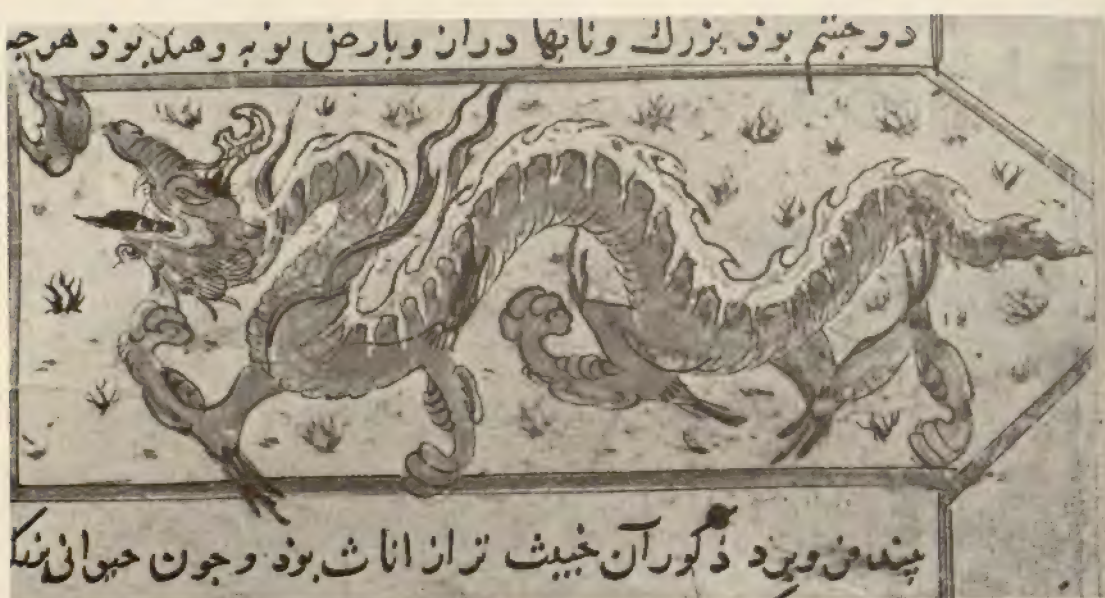 دو جشم بوذ بزرك ونابها دراز وبارض نوبه وهند بوذ هرجه
بیند فرو برد ذكور آن خبیث تر از اناث بوذ و جون حیوانی